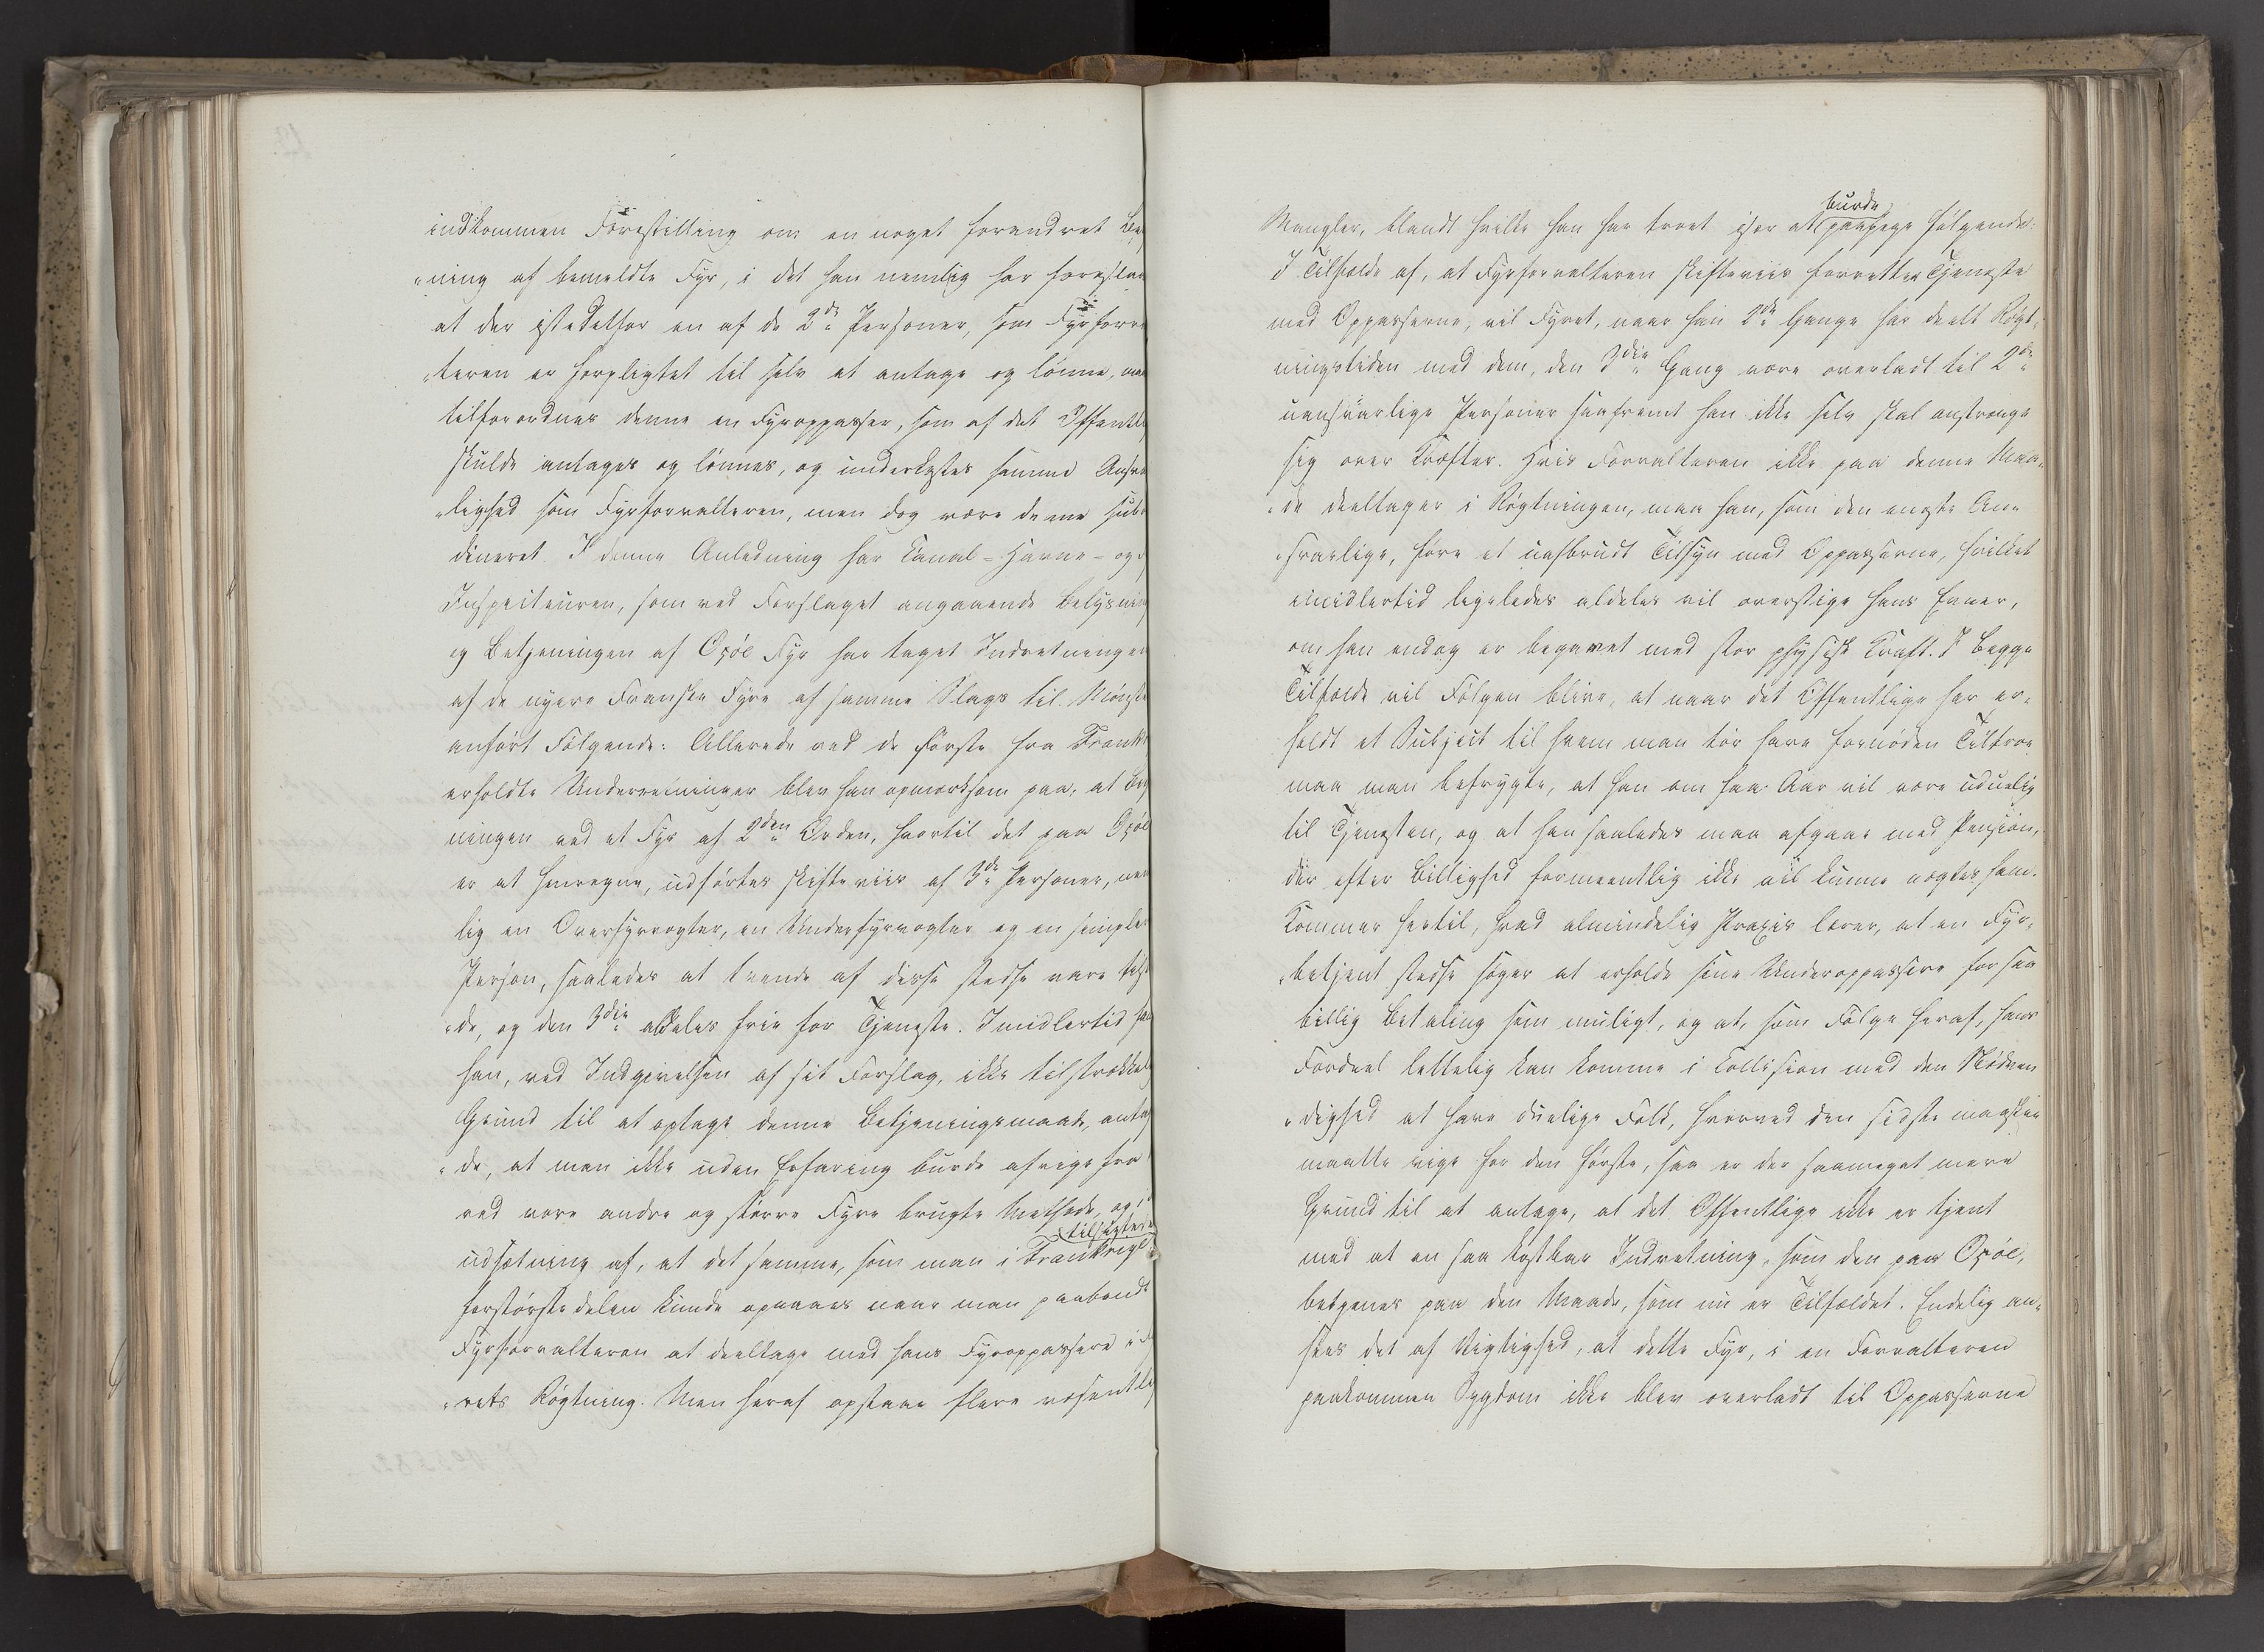 indkommen Forestilling om en noget forandret Be
„ning af bemeldte Fyr, i det han nemlig har foreslaa
at der istedetfor en af de 2de Personer, som Fyrforva
„teren er forpligtet til selv at antage og lönne, maa
tilforordnes denne en Fyroppasser, som af det Offentli
skulde antages og lönnes, og underkastes samme Ansva
„lighed som Fyrforvalteren, men dog være denne subo
dineret. I denne Anledning har Canal-Havne- og
Inspecteuren, som ved Forslaget angaaende Belysning
og Betjeningen af Oxöe Fyr har taget Indretningen
af de nyere Franske Fyre af samme Slags til Mönste
anfört Fölgende: Allerede ved de förste fra Frankr
erholdte Underretninger blev han opmærksom paa, at Be
ningen ved et Fyr af 2den Orden, hvortil det paa Oxöe
er at henregne, udförtes skifteviis af 3de Personer, nem
lig en Overfyrvogter, en Underfyrvogter og en simpler
Person, saaledes at tvende af disse stedse vare tilst
„de, og den 3die aldeles frie for Tjeneste. Imidlertid fan
han, ved Indgivelsen af sit Forslag, ikke tilstrækkel
Grund til at optage denne Betjeningsmaade, anta
„de, at man ikke uden Erfaring burde afvige fra
ved vore andre og större Fyre brugte Methode, og i
udsætning af, at det samme, som man i Frankrige tilsigtede
forstörstedelen kunde opnaaes naar man paabandt
Fyrforvalteren at deeltage med hans Fyroppassere i
„rets Rögtning. Men heraf opstaae flere væsentli
Mangler, blandt hvilke han har troet især at burde paapege fölgende:
I Tilfælde af, at Fyrforvalteren skifteviis forretter Tjeneste
med Oppasserne, vil Fyret, naar han 2de Gange har deelt Rögt„
ningstiden med dem, den 3die Gang være overladt til 2de
uansvarlige Personer saafremt han ikke selv skal anstrenge
sig over Kræfter. Hvis Forvalteren ikke paa denne Maa„
„de deeltager i Rögtningen, maa han, som den eneste An„
„svarlige, före et uafbrudt Tilsyn med Oppasserne, hvilket
imidlertid ligeledes aldeles vil overstige hans Evner,
om han endog er begavet med stor physisk Kraft. I begge
Tilfælde vil Fölgen blive, at naar det Offentlige har er„
holdt et Subject til hvem man tör have fornöden Tiltroe
maa man befrygte, at han om faa Aar vil være uduelig
til Tjenesten, og at han saaledes maa afgaae med Pension,
der efter Billighed formeentlig ikke vil kunne nægtes ham.
Kommer hertil, hvad almindelig Praxis lærer, at en Fyr„
„betjent stedse söger at erholde sine Underoppassere for saa
billig Betaling som muligt, og at, som Fölge heraf, hans
Fordeel lettelig kan komme i Collision med den Nödven
„dighed at have duelige Folk, hvorved den sidste maaskee
maatte vige for den förste, saa er der saameget mere
Grund til at antage, at det Offentlige ikke er tjent
med at en saa kostbar Indretning, som den paa Oxöe,
betjenes paa den Maade, som nu er Tilfældet. Endelig an„
sees det af Vigtighed, at dette Fyr, i en Forvalteren
paakommen Sygdom ikke blev overladt til Oppasserne